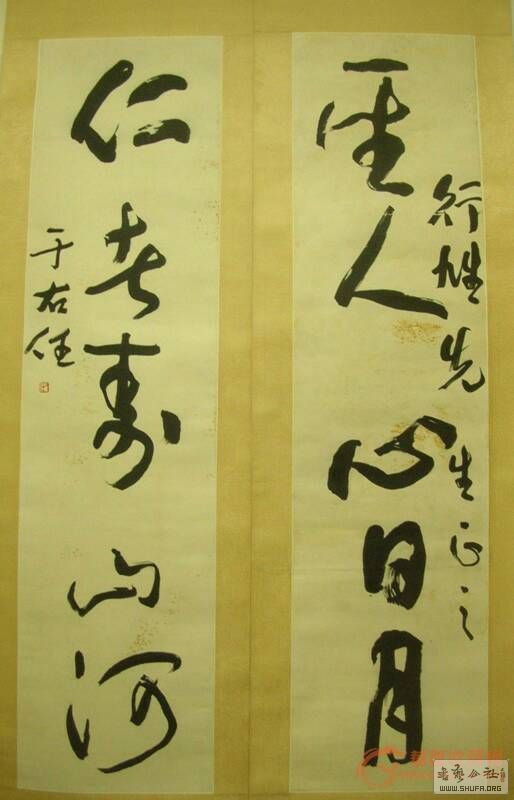 圣人心日月
行雄先生正之
仁者寿山河
于右任
书画公社
WWW.SHUFA.ORG